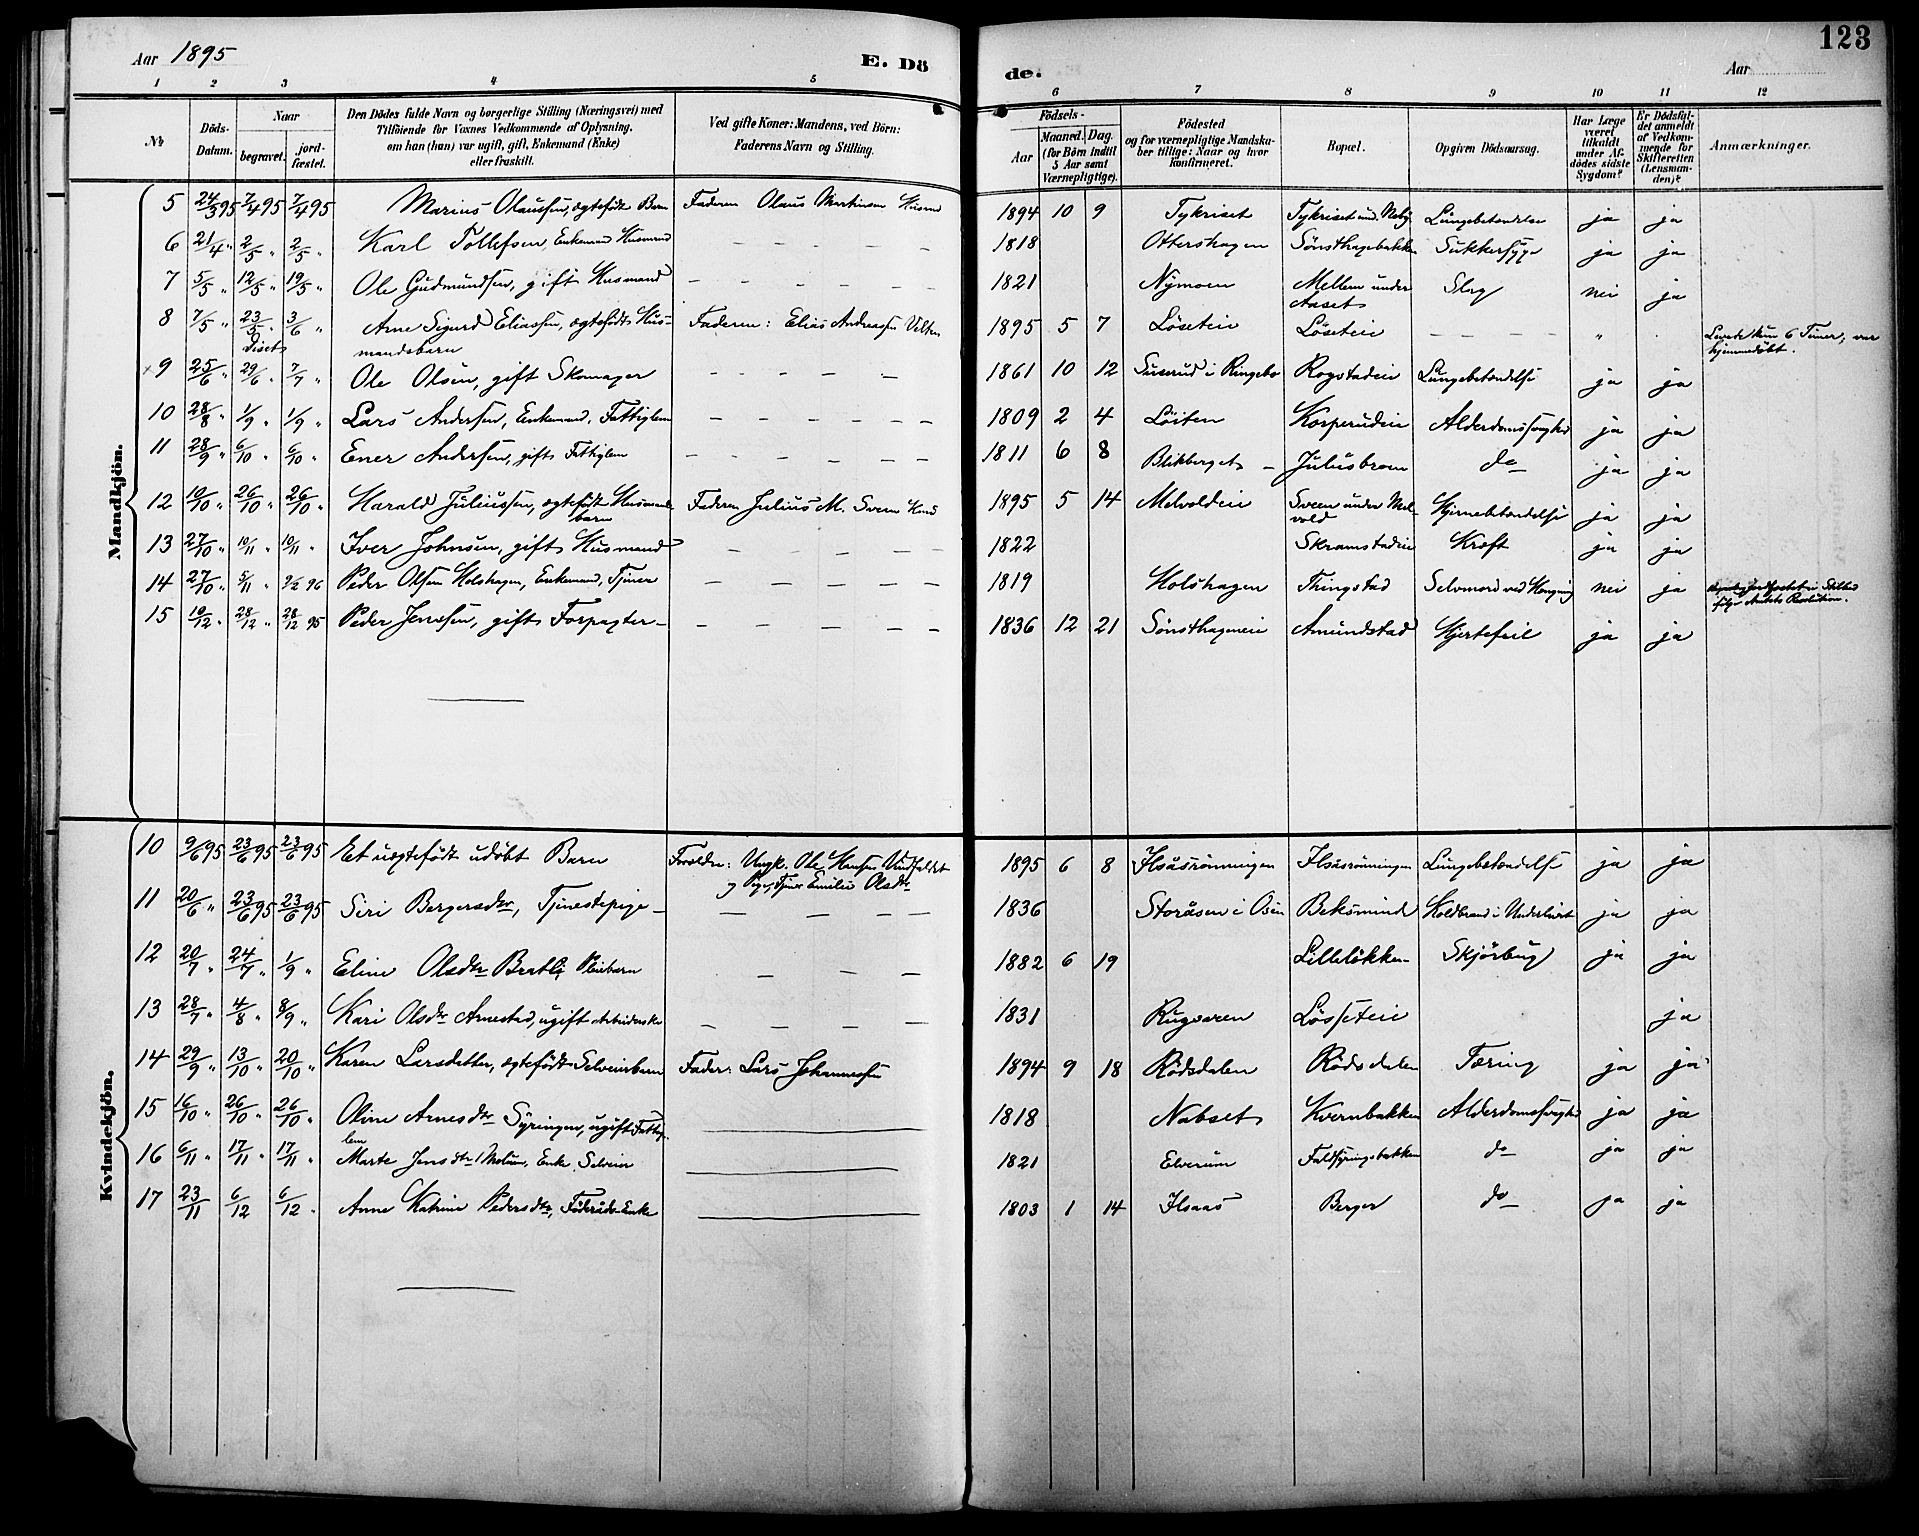 123
Aar 1895 E. Dö de. Aar
1 2 3 4 5 6 7 8 9 10 11 12
Nr
Döds-Datum.
Naar
begravet.
jord-fæstet.
Den Dödes fulde Navn og borgerlige Stilling (Næringsvei) med
Tilföiende for Voxnes Vedkommende af Oplysning,
om han (hun) var ugift, gift, Enkemand (Enke)
eller fraskilt.
Ved gifte Koner: Mandens, ved Börn:
Faderens Navn og Stilling.
Födsels-
Aar
Maaned. Dag.
(for Börn indtil
5 Aar samt
Værnepligtige).
Födested
og for værnepligtige Mandska-
ber tillige: Naar og hvor
konfirmeret.
Bopæl.
Opgiven Dödsaarsag.
Har Læge
været
tilkaldt
under Af-
dödes sidste
Sygdom?
Er Dödsfal-
det anmeldt
af Vedkom-
mende for
Skifteretten
(Lensman-
den)?
Anmærkninger.
Mandkjön.
5 24/3 95 7/4 95 7/4 95 Marius Olaussen, ægtefödt Barn Faderen Olaus Martinsen Husmd 1894 10 9 Tykriset Tykriset und. Neby Lungebetændelse ja ja
6 21/4 " 2/5 " 2/5 " Karl Tollefsen, Enkemand Husmand – – – – – 1818 Ottershagen Sönsthagebakken Sukkersyge ja ja
7 5/5 " 12/5 " 19/5 " Ole Gudmundsen, gift Husmand – – – – – 1821 Nymoen Mellem under Aaset Slag nei ja
8 7/5 " 23/5 " 3/6 " Arne Sigurd Eliassen, ægtefödt Hus- Faderen: Elias Andreasen 1895 5 7 Löseteie Löseteie – – – " Levede kun 6 Timer, var
Diset mandsbarn hjemmedöbt.
×9 25/6 " 29/6 " 7/7 " Ole Olsen, gift Skomager – – – – 1861 10 12 i Ringebo Rogstadeie Lungebetændelse ja ja
10 28/8 " 1/9 " 1/9 " Lars Andersen, Enkemand, Fattiglem – – – – – 1809 2 4 Löiten Korperudeie Alderdomssvaghed ja ja
11 28/9 " 6/10 " 6/10 " Ener Andersen, gift Fattiglem – – – – – – 1811 6 8 Blikberget – Juliusbroen do ja ja
12 19/10 " 26/10 " 26/10 " Harald Juliussen, ægtefödt Husmands- Faderen Julius M. Sveen Husmd 1895 5 14 Melvoldeie Sveen under Mel- Hjernebetændelse ja ja
barn vold
13 27/10 " 10/11 " 10/11 " Iver Johnsen, gift Husmand – – – – 1822 Skramstadeie Kræft ja ja
14 27/10 " 5/11 " 2/2 96 Peder Olsen Holshagen, Enkemand, Tjener – – – – – 1819 Holshagen Thingstad Selvmord ved Hængning nei ja jordfæstet i Stilhed
ifölge Amtets Resolution.
15 19/12 " 28/12 " 28/12 95 Peder Jensen, gift Forpagter – – – – – – 1836 12 21 Sönsthageneie Amundstad Hjertefeil ja ja
Kvindekjön.
10 9/6 95 23/6 95 23/6 95 Et uægtefödt udöbt Barn Forældre: Ungk. Ole Hansen Vindfaldet 1895 6 8 Ilsåsrönningen Ilsåsrönningen Lungebetændelse ja ja
og Pige, Tjener Emilie Olsdtr
11 20/6 " 23/6 95 23/6 95 Siri Bergersdtr, Tjenestepige – – – – – 1836 Storåsen i Osen Beksminde Koldbrand i Underlivet ja ja
12 20/7 " 24/7 " 1/9 " Eline Olsdtr Bratli Pleiebarn – – – – 1882 6 19 Lillelökken Skjörbug ja ja
13 28/7 " 4/8 " 8/9 " Kari Olsdtr Arnestad, ugift Arbeiderske – – – – 1831 Rugsveen Lösseteie ja
14 29/9 " 13/10 " 20/10 " Karen Larsdatter, ægtefödt Selveierbarn Fader: Lars Johannessen 1894 9 18 Rödsdalen Rödsdalen Tæring ja ja
15 16/10 " 26/10 " 26/10 " Oline Arnesdtr Syringen, ugift Fattig- 1818 Nabset Kvernbakken Alderdomssvaghed ja ja
lem
16 6/11 " 17/11 " 17/11 " Marte Jensdtr Melum, Enke Selveier 1821 Elverum Faldsyringsbakken do ja ja
17 23/11 6/12 6/12 " Anne Katrine Pedersdtr, Föderåds Enke 1803 1 14 Ilsaas Berger do ja ja